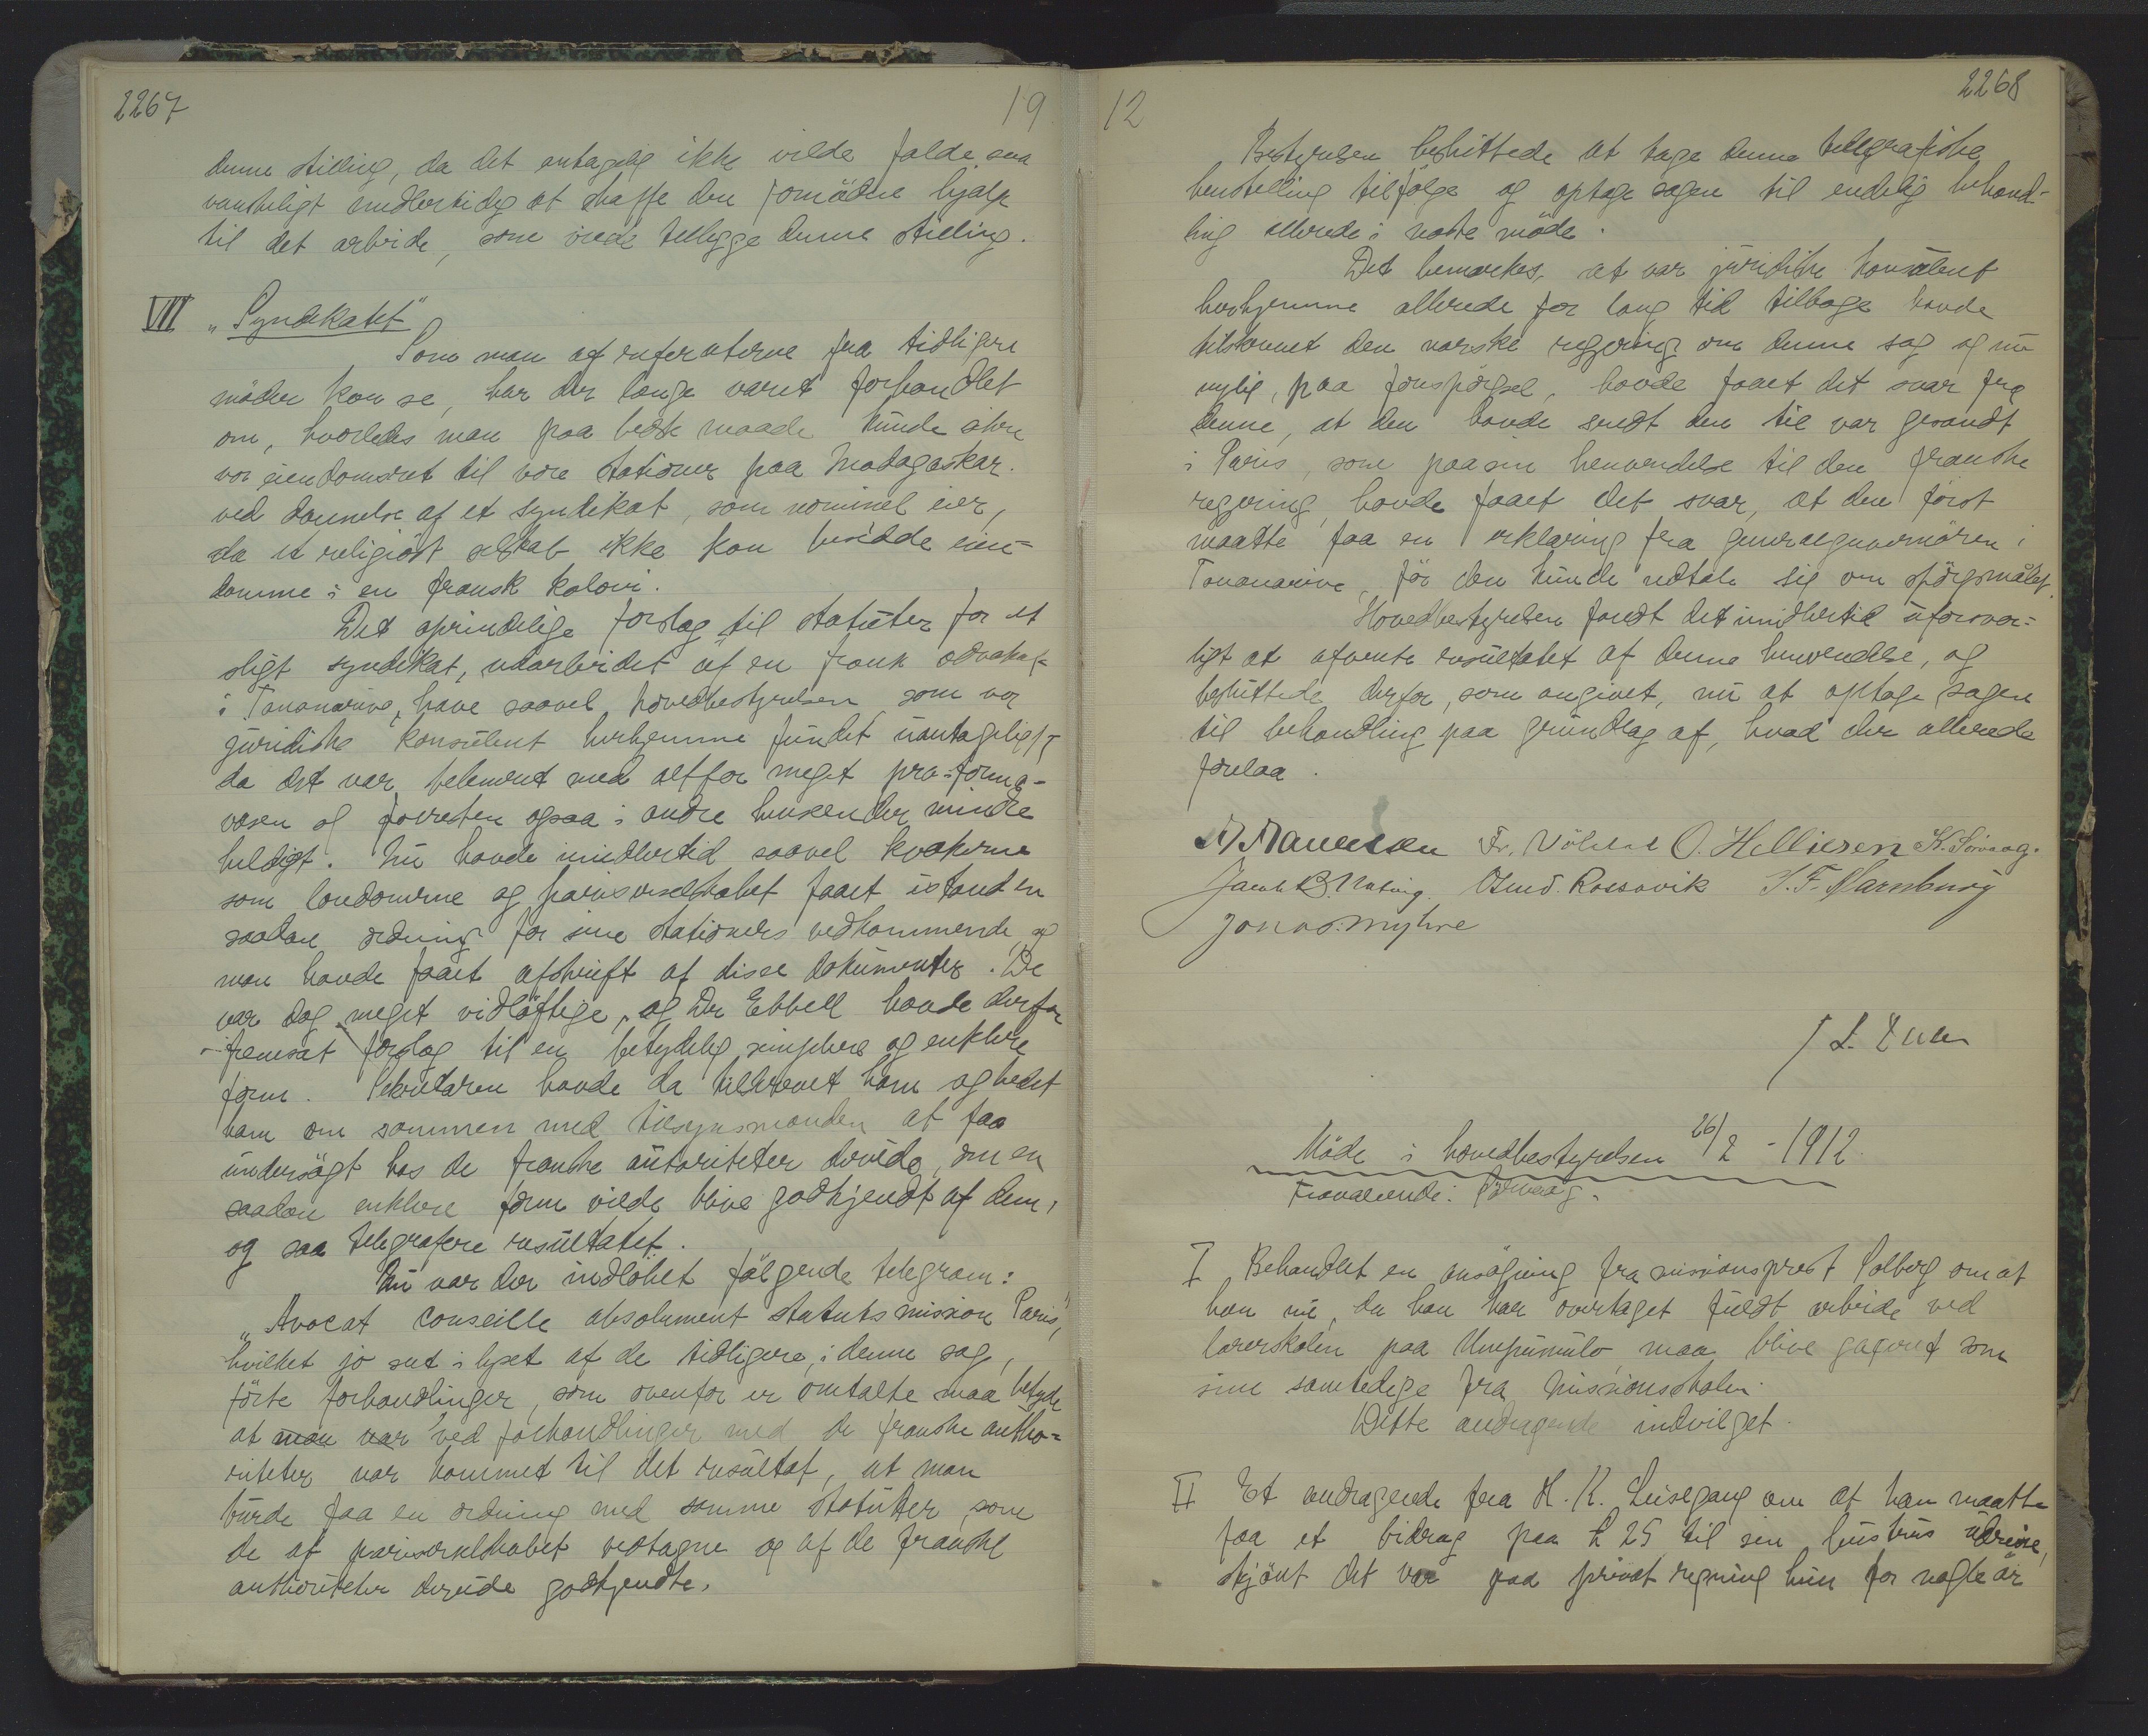 2267
19
denne stilling, da det antagelig ikke vilde falde saa
vanskeligt midlertidig at skaffe den fornödne hjælp
til det arbeide, som vilde tillegge denne stilling.
VII „Syndekatet"
Som man af referaterne fra tidligere
möder kan se, har der længe været forhandlet
om, hvorledes man paa bedste maade kunde sikre
vor eiendomsret til vore stationer paa Madagaskar
ved dannelse af et syndikat, som nominel eier,
da et religiöst selskab ikke kan besidde eien-
domme i en fransk koloni.
Det oprindelige forslag til statuter for et
sligt syndikat, udarbeidet af en fransk advokat
i Tananarive, have saavel hovedbestyrelsen som vor
juridiske konsulent herhjemme fundet uantageligt,
da det var belemret med altfor meget pro-forma-
væsen og forresten ogsaa i andre henseender mindre
heldigt. Nu havde imidlertid saavel kvækerne
som londonerne og pariserselskabet faaet istand en
saadan ordning for sine stationers vedkommende, og
man havde faaet afskrift af disse dokumenter. De
var dog meget vidlöftige, og Dr Ebbell havde derfor
fremsat forslag til en betydelig simplere og enklere
form. Sekretæren havde da tilskrevet ham og bedet
ham om sammen med tilsynsmanden at faa
undersögt hos de franske autoriteter derude, om en
saadan enklere form vilde blive godkjendt af dem,
og saa telegrafere resultatet.
Nu var der indlöbet fölgende telegram:
„Avocat conseille absolument statuts mission Paris",
hvilket jo set i lyset af de tidligere, i denne sag,
förte forhandlinger, som ovenfor er omtalte maa betyde
at man var ved forhandlinger med de franske autho-
riteter var kommet til det resultat, at man
burde faa en ordning med samme statuter, som
de af pariserselskabet vedtagne og af de franske
authoriteter derude godkjendte.
12
2268
Bestyrelsen besluttede at tage denne telegrafiske
henstilling tilfölge og optage sagen til endelig behand-
ling allerede i næste möde.
Det bemærkes, at vor juridiske konsulent
herhjemme allerede for lang tid tilbage havde
tilskrevet den norske regjering om denne sag og nu
nylig, paa forespörgsel, havde faaet det svar fra
denne, at den havde sendt den til vor gesandt
i Paris, som paa sin henvendelse til den franske
regjering, havde faaet det svar, at den först
maatte faa en erklæring fra generalguvernören i
Tananarive, för den kunde udtale sig om spörgsmålet.
Hovedbestyrelsen fandt det imidlertid uforsvar-
ligt at afvente resultatet af denne henvendelse, og
besluttede derfor, som angivet, nu at optage sagen
til behandling paa grundlag af, hvad der allerede
forelaa.
O. Helliesen
Jacob
Rossavik
Jonas Myhre
Möde i hovedbestyrelsen 26/2 - 1912
Fraværende: Sörvaag.
I Behandlet en ansögning fra missionsprest Solberg om at
han nu, da han har overtaget fuldt arbeide ved
lærerskolen paa Umpumulo, maa blive gageret som
sine samtidige fra missionsskolen.
Dette andragende indvilget.
II Et andragende fra H. K. Leisegang om at han maatte
faa et bidrag paa £ 25 til sin hustrus udreise,
skjönt det var paa privat regning hun for nogle år